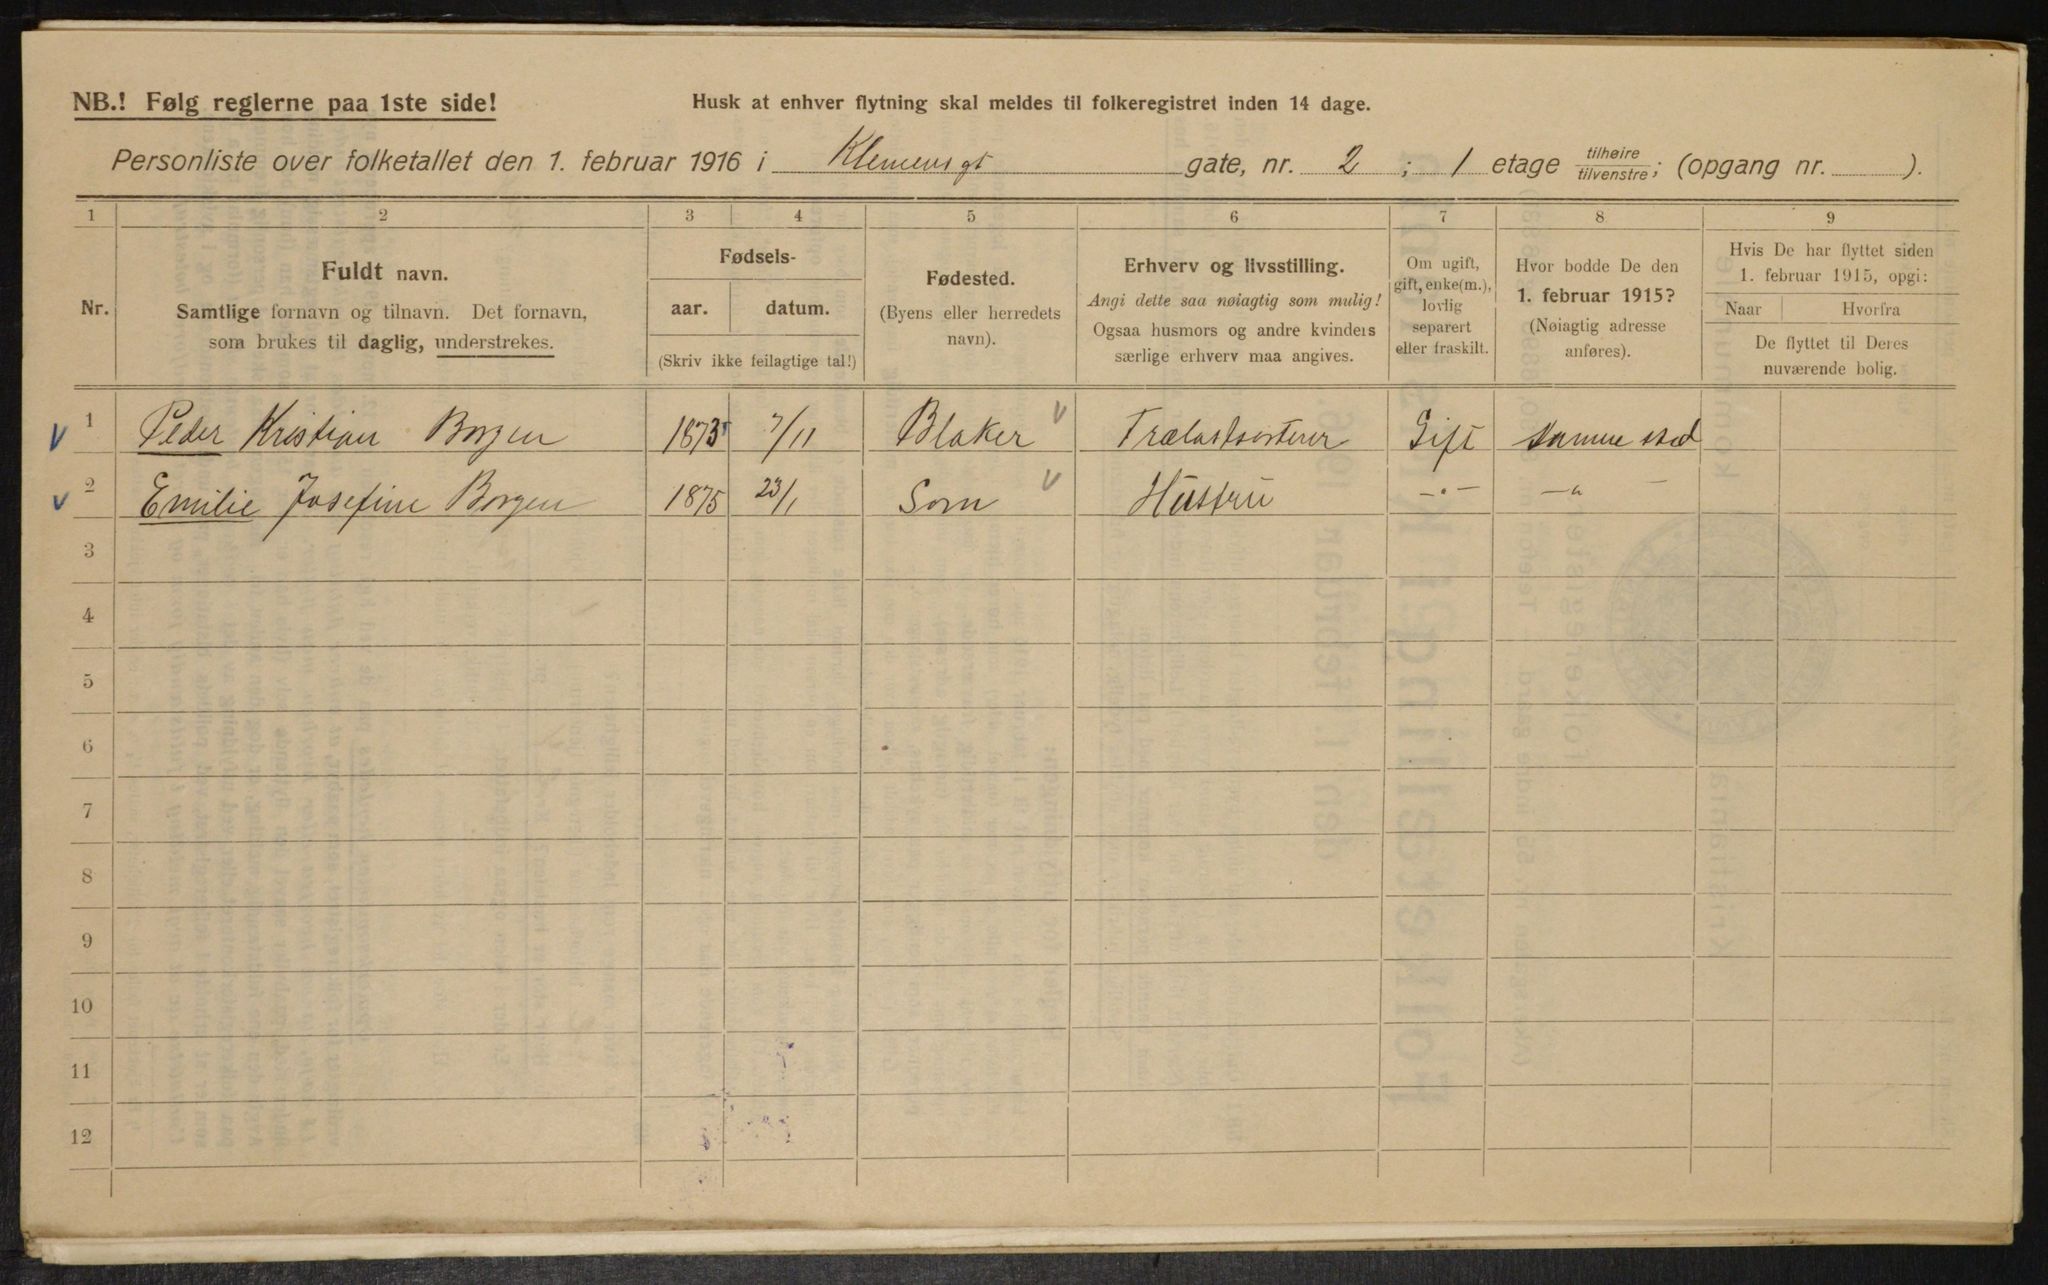 NB.! Følg reglerne paa 1ste side!
Husk at enhver flytning skal meldes til folkeregistret inden 14 dage.
Personliste over folketallet den 1. februar 1916 i Klemensgt gate, nr. 2; 1 etage tilhøire/tilvenstre; (opgang nr. ).
1 2 3 4 5 6 7 8 9
Nr.
Fuldt navn.
Samtlige fornavn og tilnavn. Det fornavn,
som brukes til daglig, understrekes.
Fødsels-
aar. datum.
(Skriv ikke feilagtige tal!)
Fødested.
(Byens eller herredets
navn).
Erhverv og livsstilling.
Angi dette saa nøiagtig som mulig!
Ogsaa husmors og andre kvinders
særlige erhverv maa angives.
Om ugift,
gift, enke(m.),
lovlig
separert
eller fraskilt.
Hvor bodde De den
1. februar 1915?
(Nøiagtig adresse
anføres).
Hvis De har flyttet siden
1. februar 1915, opgi:
Naar Hvorfra
De flyttet til Deres
nuværende bolig.
V 1 Peder Kristian Borgen 1873 7/11 Blaker V Trælastsorterer Gift Samme sted
V 2 Emilie Josefine Borgen 1875 23/1 Son V Hustru -"- -"-
3
4
5
6
7
8
9
10
11
12